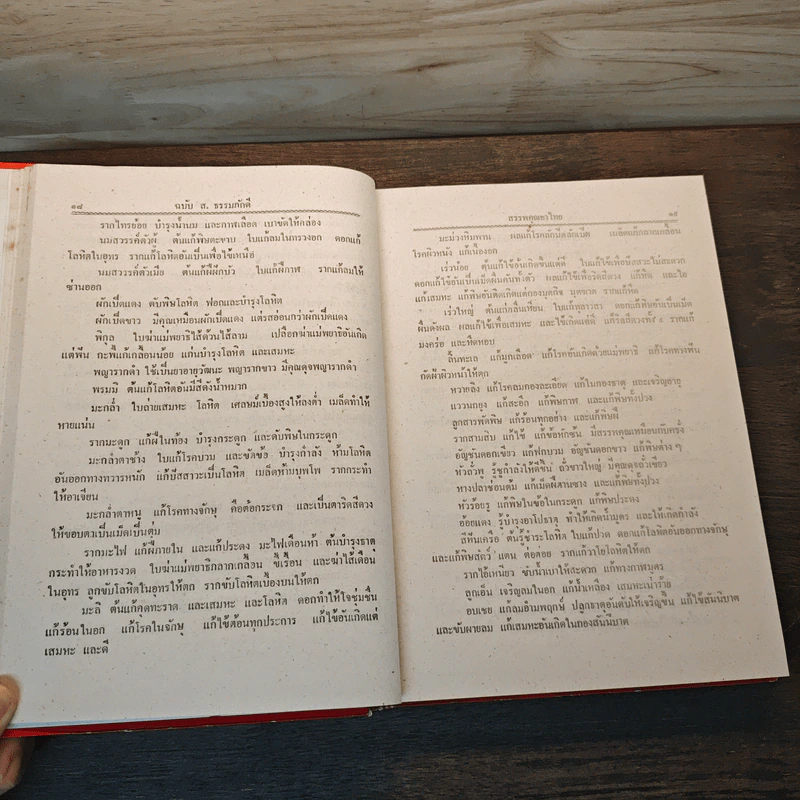 ๑๘ ฉบับ ส. ธรรมภักดี
รากไทรย้อย บำรุงน้ำนม และกาฬเลือด เบาขัดให้คล่อง
นมสวรรค์ตัวผู้ ต้นแก้พิษตะขาบ ใบแก้ลมในทรวงอก ดอกแก้
โลหิตในอุทร รากแก้โลหิตอันเป็นเพื่อไข้เหนือ
นมสวรรค์ตัวเมีย ต้นแก้ผีฝักบัว ใบแก้ฝีกาฬ รากแก้ลมให้
ซ่านออก
ผักเป็ดแดง ดับพิษโลหิต ฟอกและบำรุงโลหิต
ผักเป็ดขาว มีคุณเหมือนผักเป็ดแดง แต่รสอ่อนกว่าผักเป็ดแดง
พิกุล ใบฆ่าแม่พยาธิไส้ด้วนไส้ลาม เปลือกฆ่าแม่พยาธิอันเกิด
แต่ฟัน กะพี้แก้เกลื้อนน้อย แก่นบำรุงโลหิต และเสมหะ
พญารากดำ ใช้เป็นยาอายุวัฒนะ พญารากขาว มีคุณดุจพญารากดำ
พรมมิ ต้นแก้โลหิตอันมีสีดังน้ำหมาก
มะกล่ำ ใบถ่ายเสมหะ โลหิต เศลษม์เบื้องสูงให้ลงต่ำ เมล็ดทำให้
หายแน่น
รากมะดูก แก้ฝีในท้อง บำรุงกระดูก และดับพิษในกระดูก
มะกล่ำตาช้าง ใบแก้โรคบวม และขัดข้อ บำรุงกำลัง ห้ามโลหิต
อันออกทางทวารหนัก แก้ปัสสาวะเป็นโลหิต เมล็ดห้ามบุพโพ รากกระทำ
ให้อาเจียน
มะกล่ำตาหนู แก้โรคทางจักษุ คือต้อกระจก และเป็นดาริดสีดวง
ให้ขอบตาเป็นเม็ดเป็นตุ่ม
รากมะไฟ แก้ฝีภายใน และแก้ประดง มะไฟเดือนห้า ต้นบำรุงธาตุ
กระทำให้อาหารงวด ใบฆ่าแม่พยาธิกลากเกลื้อน ขี้เรื้อน และฆ่าไส้เดือน
ในอุทร ลูกขับโลหิตในอุทรให้ตก รากขับโลหิตเบื้องบนให้ตก
มะลิ ต้นแก้คุดทะราด และเสมหะ และโลหิต ดอกทำให้ใจชุ่มชื่น
แก้ร้อนในอก แก้โรคในจักษุ แก้ไข้ต้อนทุกประการ แก้ไข้อันเกิดแต่
เสมหะ และดี
สรรพคุณยาไทย ๑๙
มะม่วงหิมพาน ผลแก้โรคลักปิดลักเปิด เมล็ดแก้กลากเกลื้อน
โรคผิวหนัง แก้เนื้องอก
เร่วน้อย ต้นแก้ไข้อันเกิดขึ้นแต่ดี ใบแก้ไข้เพื่อปัสสาวะไม่สะดวก
ดอกแก้ไข้อันเป็นเม็ดผื่นคันทั้งตัว ผลแก้ไข้เพื่อริดสีดวง แก้หืด และไอ
แก้เสมหะ แก้พิษอันติดเกิดแต่กองมุตกิจ มุตฆาต รากแก้หืด
เร่วใหญ่ ต้นแก่กลิ่นเหียน ใบแก้มุตาวรส ดอกแก้พิษอันเป็นเม็ด
ผื่นดังผด ผลแก้ไข้เพื่อเสมหะ และไข้เกิดแต่ดี แก้ริดสีดวงทั้ง ๙ รากแก้
มงคร่อ และหืดหอบ
ลิ้นทะเล แก้มูกเลือด แก้โรคอันเกิดด้วยแม่พยาธิ แก้โรคทางฟัน
กัดฝ้าผิวหน้าให้ตก
หวายลิง แก้โรคลมกองละเอียด แก้ในกองธาตุ และเจริญอายุ
แววนกยุง แก้สะอึก แก้พิษกาฬ และแก้พิษทั้งปวง
ลูกสารพัดพิษ แก้ร้อนทุกอย่าง และแก้พิษฝี
รากสามสิบ แก้ไข้ แก้ข้อหักซ้น มีสรรพคุณเหมือนกับครั่ง
อัญชันดอกเขียว แก้ฟกบวม อัญชันดอกขาว แก้พิษต่าง ๆ
หัวถั่วพู รู้ชูกำลังให้ดีขึ้น ถั่วขาวใหญ่ มีคุณดุจถั่วเขียว
หางปลาช่อนต้ม แก้เม็ดฝีผานซาง และแก้พิษทั้งปวง
หัวร้อยรู แก้พิษในข้อในกระดูก แก้พิษประดง
อ้อยแดง รู้บำรุงอาโปธาตุ ทำให้เกิดน้ำมูตร และให้เกิดกำลัง
สีหันเครือ ต้นรู้ชำระโลหิต ใบแก้ปวด ดอกแก้โลหิตอันออกทางจักษุ
และแก้พิษสัตว์ แตน ต่อต่อย รากแก้วาโยโลหิตให้ตก
รากไอ้เหนียว ขับน้ำเบาให้สะดวก แก้ทางกาฬมูตร
ลูกเอ็น เจริญลมในอก แก้น้ำเหลือง เสมหะเน่าร้าย
อบเชย แก้ลมอำมพฤกษ์ ปลูกธาตุอันดับให้เจริญขึ้น แก้ไข้สันนิบาต
และขับผายลม แก้เสมหะอันเกิดในกองสันนิบาต